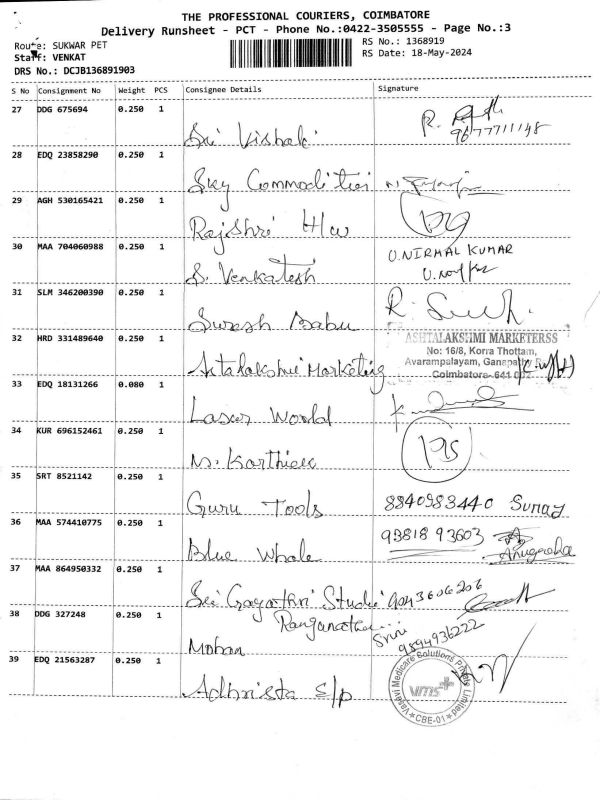 THE PROFESSIONAL COURIERS, COIMBATORE
Delivery Runsheet - PCT - Phone No.:0422-3505555 - Page No.:3
Route: SUKWAR PET
RS No.: 1368919
Staff: VENKAT
RS Date: 18-May-2024
DRS No.: DCJB136891903
S No Consignment No Weight PCS Consignee Details Signature
27 DDG 675694 0.250 1
Sri Vishali R. 9677711148
28 EDQ 23858290 0.250 1
Sky Commodities
29 AGH 530165421 0.250 1
Rajshri H/w
30 MAA 704060988 0.250 1
S. Venkatesh U.NIRMAL KUMAR
31 SLM 346200390 0.250 1
Suresh Babu
32 HRD 331489640 0.250 1
Astalakshmi Marketing
ASHTALAKSHMI MARKETERSS
No: 16/8, Korra Thottam,
Avarampalayam, Ganapathy
Coimbatore- 641
33 EDQ 18131266 0.080 1
Laser World
34 KUR 696152461 0.250 1
M. Karthick
35 SRT 8521142 0.250 1
Guru Tools 8840983440
36 MAA 574410775 0.250 1
Blue Whale 93818 93603
Anugraha
37 MAA 864950332 0.250 1
Sri Gayathri Studio 9043606206
38 DDG 327248 0.250 1
Ranganatha
Mohan
Srini
9894936222
39 EDQ 21563287 0.250 1
Adhrista s/p
Vasavi Medicare Solutions Private Limited
vms
CBE-01